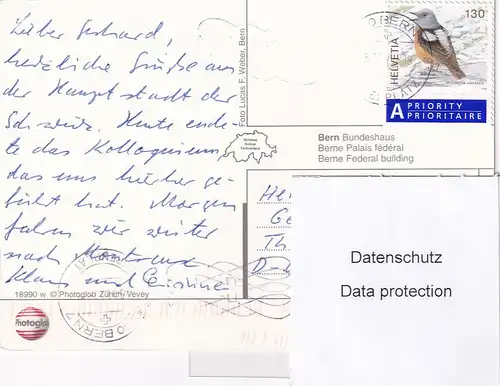 Lieber Gerhard,
herzliche Grüße aus
der Hauptstadt der
Schweiz. Heute ende-
te das Kolloquium,
das uns hierher ge-
führt hat. Morgen
fahren wir weiter
nach Montreux
Klaus und Christine
18990 w © Photoglob Zürich/Vevey
Photoglob
Foto Lucas F. Weber, Bern
130
HELVETIA
A PRIORITY
PRIORITAIRE
Bern Bundeshaus
Berne Palais fédéral
Berne Federal building
He
Ge
Th
D-
Datenschutz
Data protection
BERN 7